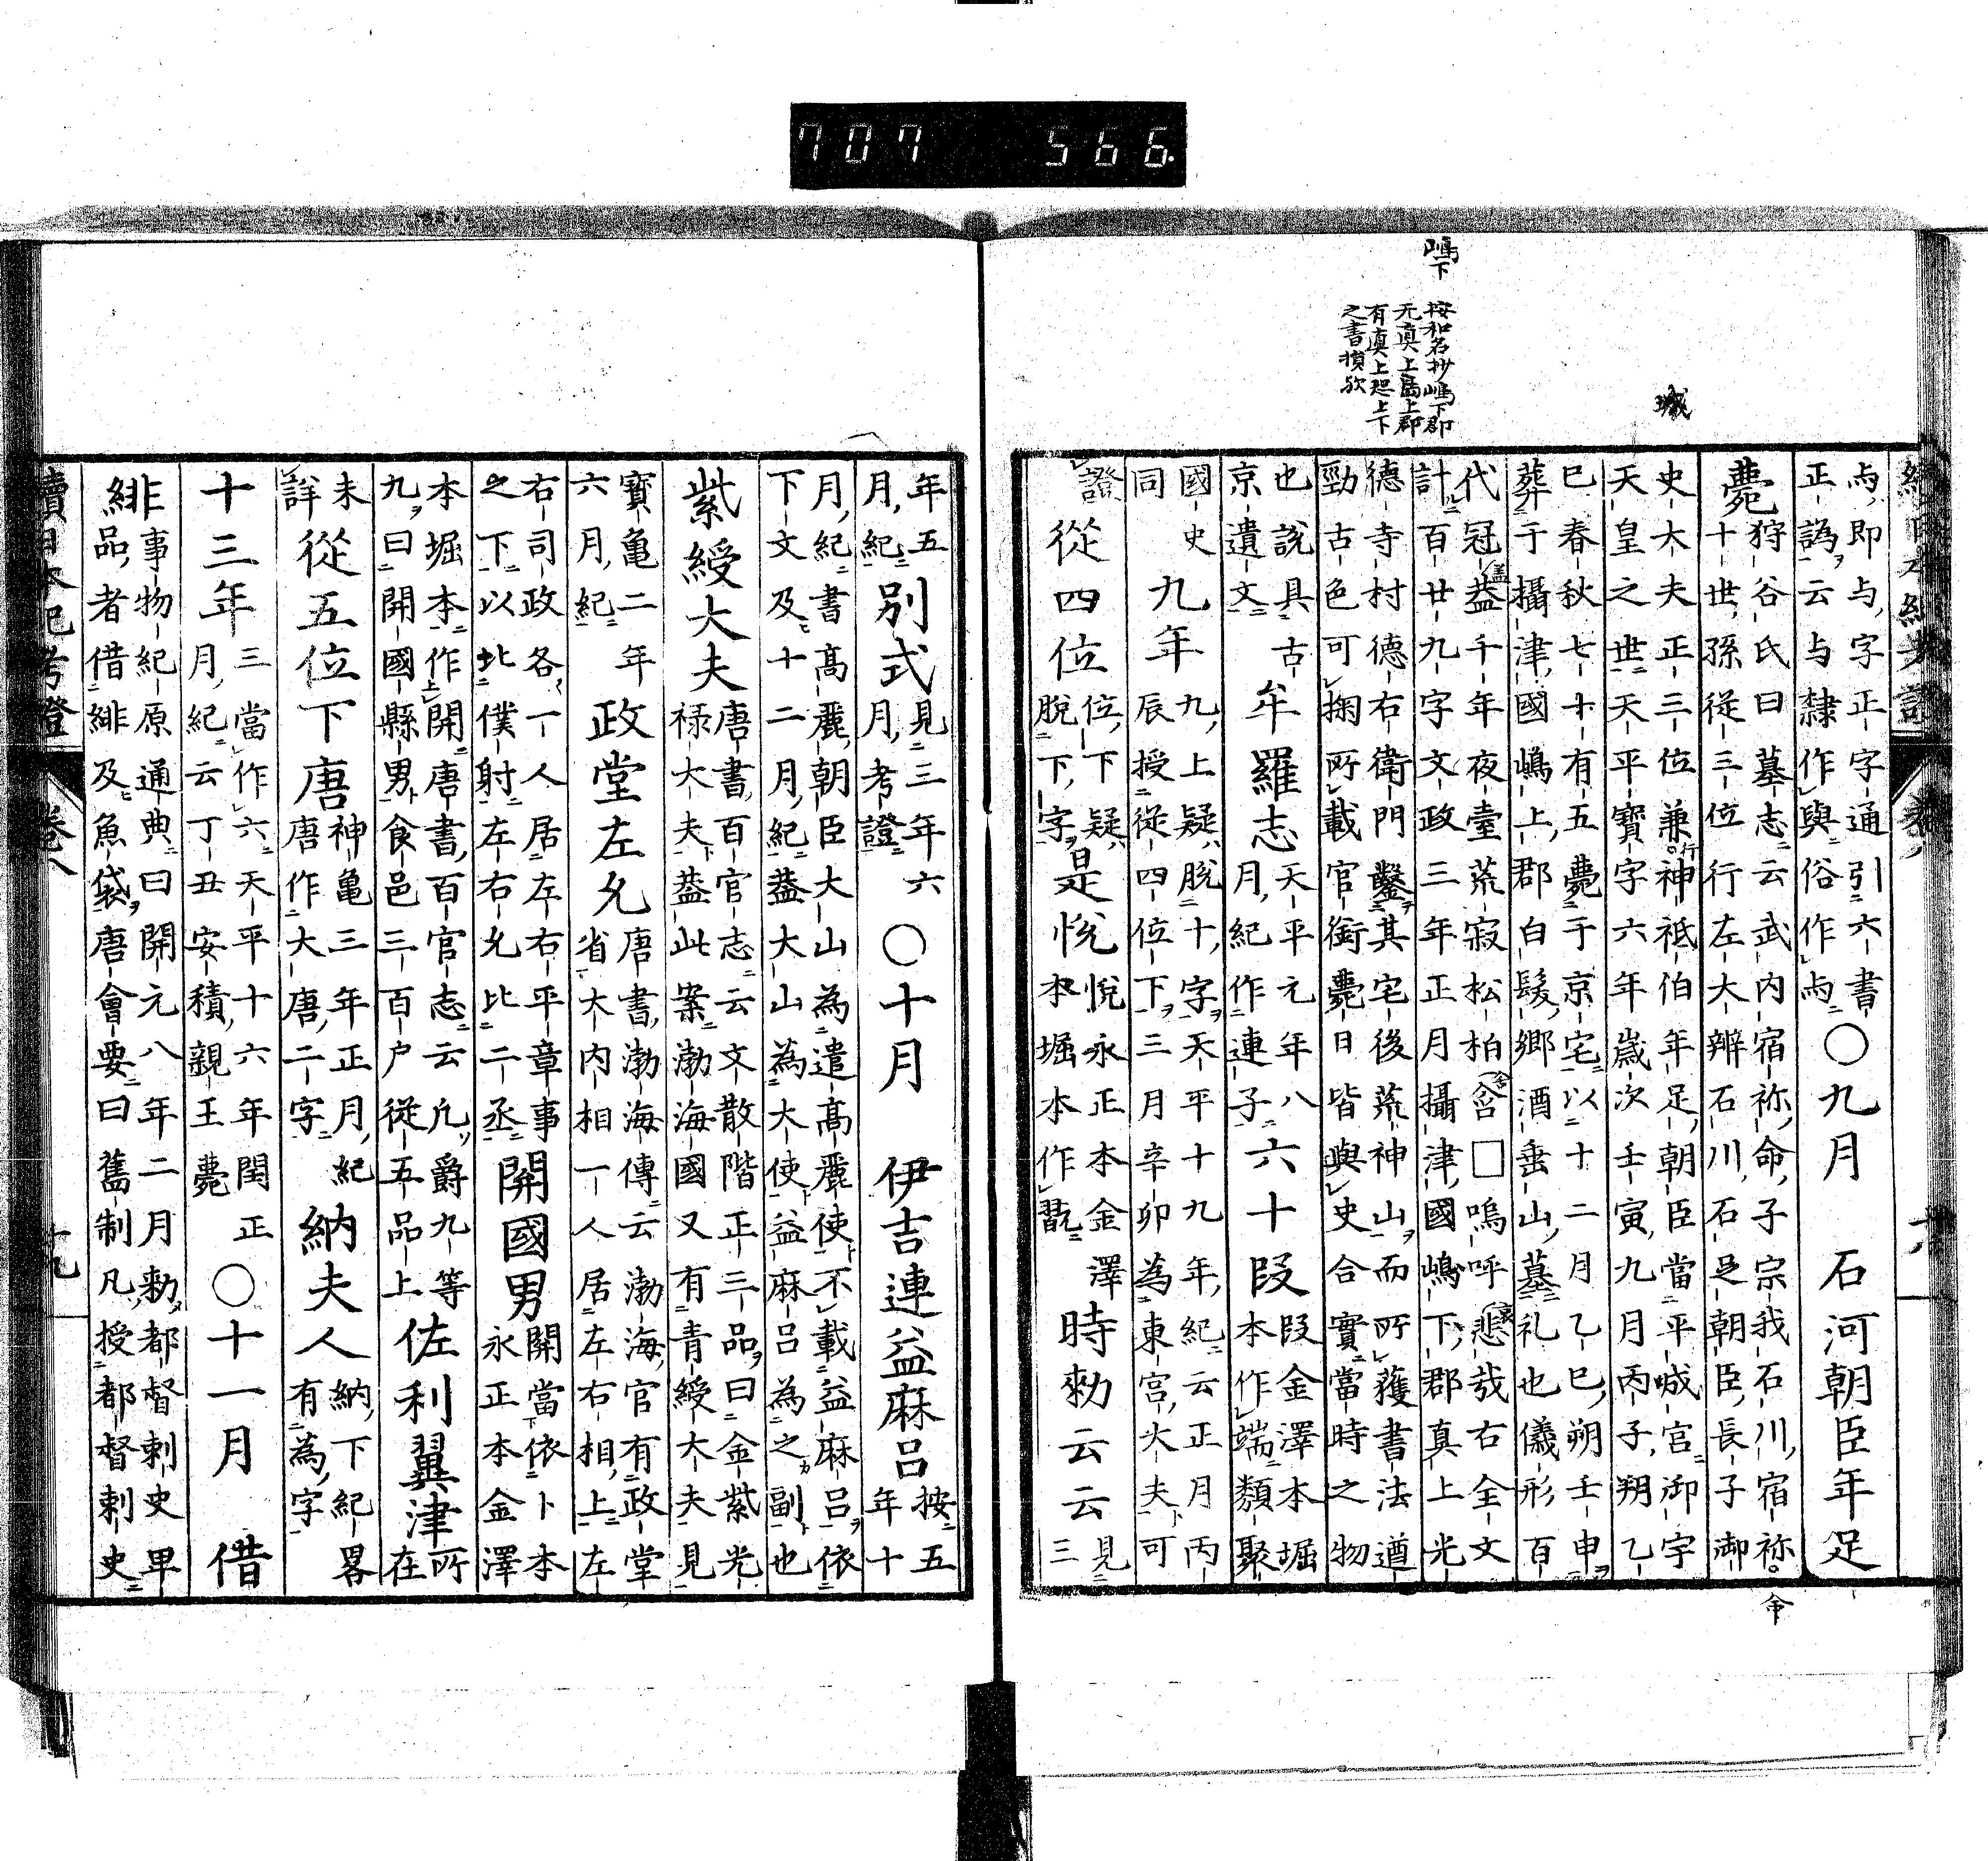 707 566.
嶋下 按和名抄嶋下郡
无眞上嶋上郡
有眞上恐上下
之書損欤
城
与即与字正字通引六書
正譌云与隸作與俗作与
○九月 石河朝臣年足
薨
狩谷氏曰墓志云武内宿祢命子宗我石川宿祢命
十世孫從三位行左大辨石川石足朝臣長子御
史大夫正三位兼行神祇伯年足朝臣當平城宮御宇
天皇之世天平寶字六年歳次壬寅九月丙子朔乙
巳春秋七十有五薨于京宅以十二月乙巳朔壬申
葬于攝津國嶋上郡白髮鄉酒垂山墓礼也儀形百
代冠蓋千年夜臺荒寂松柏含□嗚呼悲哉右全文
計百廿九字文政三年正月攝津國嶋下郡真上光
德寺村德右衛門鑿其宅後荒神山而所獲書法遒
勁古色可掬所載官銜薨日皆與史合實當時之物
也說具古
京遺文
牟羅志
天平元年八
月紀作連子
六十段
段金澤本堀
本作端類聚
國史
同
九年
九上疑脱十字天平十九年紀云正月丙
辰授從四位下三月辛卯為東宮大夫可
證
從四位
位下疑
脫下字
是悅
悅永正本金澤
本堀本作翫
時勅云云
見
三
年五
月紀
別式
見三年六
月考證
○十月 伊吉連益麻呂
按五
年十
月紀書高麗朝臣大山為遣高麗使不載益麻呂依
下文及十二月紀蓋大山為大使益麻呂為之副也
紫綬大夫
唐書百官志云文散階正三品曰金紫光
祿大夫蓋此案渤海國又有青綬大夫見
寶亀二年
六月紀
政堂左允
唐書渤海傳云渤海官有政堂
省大内相一人居左右相上左
右司政各一人居左右平章事
之下以比僕射左右允比二丞
開國男
開當依卜本
永正本金澤
本堀本作開唐書百官志云凡爵九等
九曰開國縣男食邑三百戸從五品上
佐利翼津
所
在
未
詳
從五位下唐
神亀三年正月紀
唐作大唐二字
納夫人
納下紀畧
有為字
十三年
三當作六天平十六年閏正
月紀云丁丑安積親王薨
○十一月 借
緋
非事物紀原通典曰開元八年二月勅都督刺史卑
品者借緋及魚袋唐會要曰舊制凡授都督刺史
續日本紀考證 卷八 十九